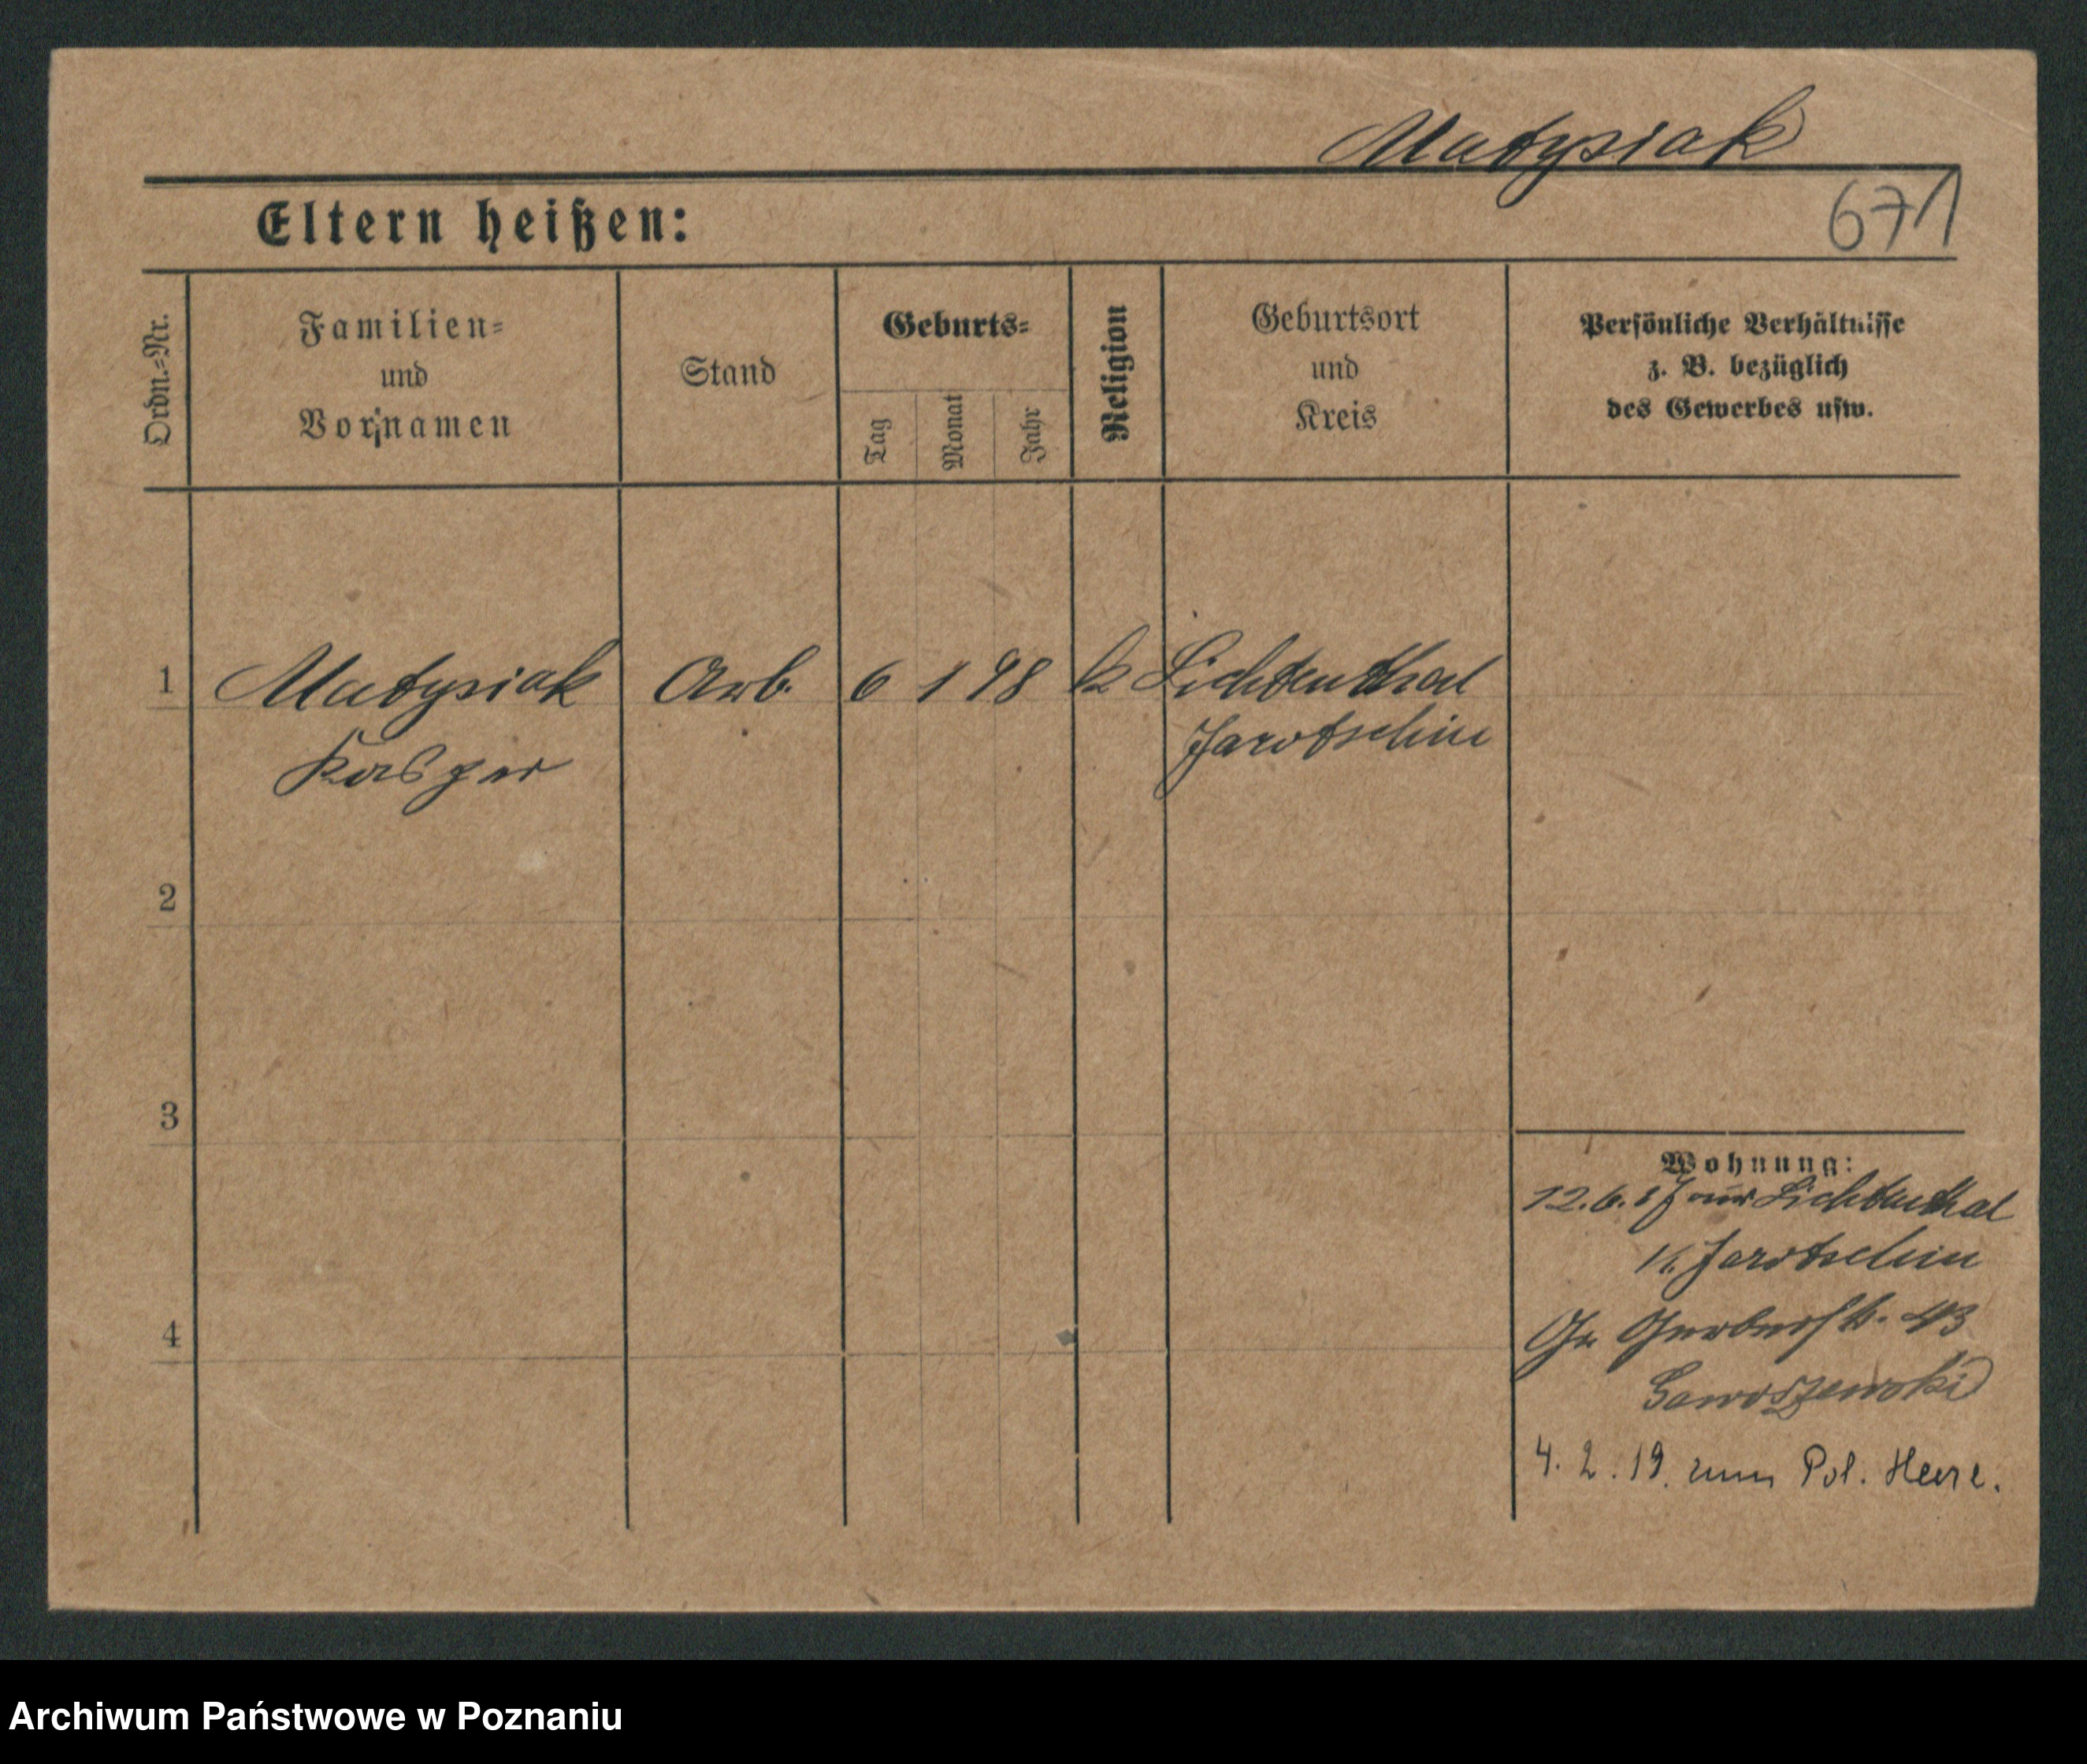 Matysiak
671
Eltern heißen:
Ordn.=Nr.
Familien=
und
Vornamen
Stand
Geburts=
Tag
Monat
Jahr
Religion
Geburtsort
und
Kreis
Persönliche Verhältnisse
z. B. bezüglich
des Gewerbes usw.
1 Matysiak Arb. 6 1 98 k Lichtenthal
Kasper Jarotschin
2
3
4
Wohnung:
12.6. aus Lichtenthal
K. Jarotschin
Gr Gerberstr. 43
4. 2. 19. zum Pol. Heere.
Archiwum Państwowe w Poznaniu